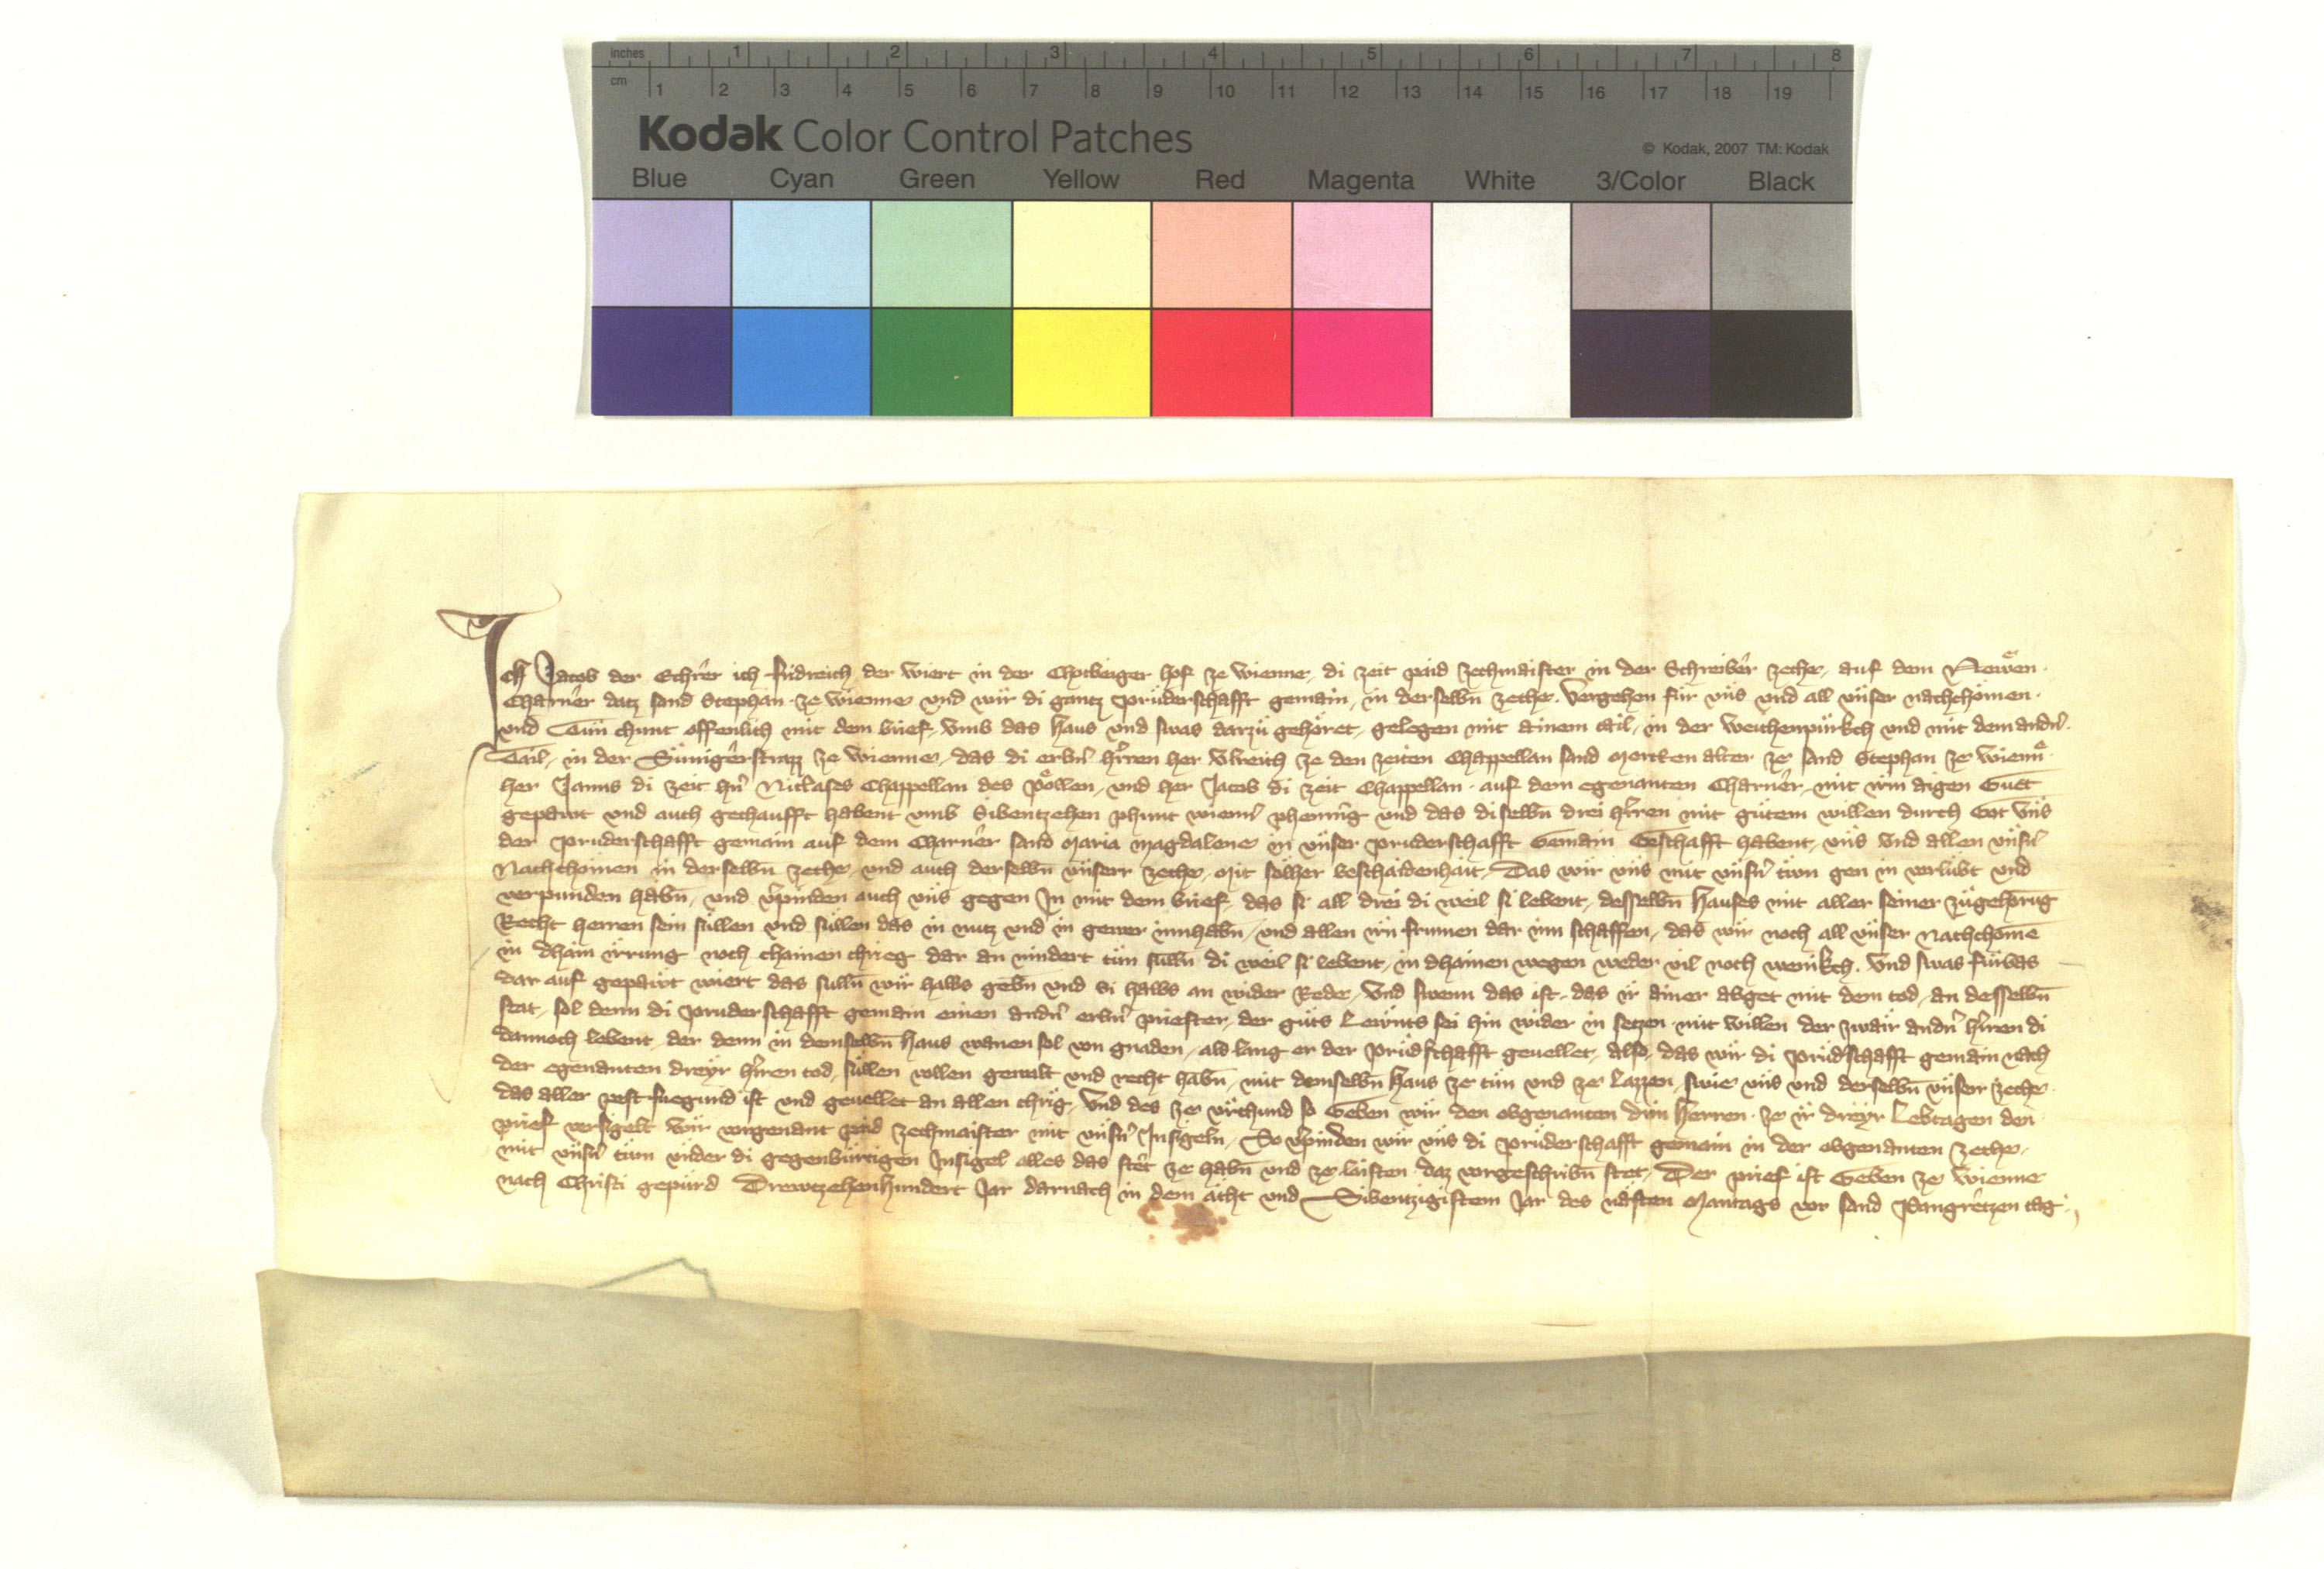 inches 1 2 3 4 5 6 7 8
cm 1 2 3 4 5 6 7 8 9 10 11 12 13 14 15 16 17 18 19
Kodak Color Control Patches
© Kodak, 2007 TM: Kodak
Blue Cyan Green Yellow Red Magenta White 3/Color Black
Ich Jacob der ich Fridreich der wiert in der hof ze wienne, di zeit paid zechmaister in der Schreiber zeche, auf dem Newen
Charner datz sand Stephan ze wienne und wir di gantz prüderschafft gemain, in derselbn zeche. Vergehen für uns und all unser nachchömen
und Tün chunt offenlich mit dem brief, umb das Haus und swas darzü gehöret, gelegen mit ainem tail, in der Weichenpürkch und mit dem andn̄
Tail, in der Sünigerstrazz ze wienne, das di erbn̄ hr̄ren her Ulreich ze den zeiten Chappellan sand Morten alter ze sand Stephan ze wienn
her Janns di zeit hn̄ Niclases Chappellan des Pöllen, und her Jacob di zeit Chappellan auf dem egenanten Charner, mit irm aigen Guet
gepawt und auch gechaufft habent umb Sibentzehen phunt wienn̄ phennig und das diselbn drei hr̄ren mit gütem willen durch Got uns
der pruderschafft gemain auf dem Charner sand Maria Magdalene in unser pruderschafft Gemain Geschafft habent, uns und allen unsn̄
Nachchomen in derselbn zeche, und auch derselbn unserr zeche, mit sölher beschaidenhait, Das wir uns mit unsn̄ trwn gen in verlubt und
verpunden habn̄, und v̄pinden auch uns gegen In mit dem brief, das si all drei di weil si lebent, desselbn Hauses mit aller seiner zügehörug
Recht herren sein süllen und süllen das in nutz und in gewer innhabn, und allen irn frumen dar inn schaffen, das wir noch all unser nachchome
in dhain irrung noch chainen chrieg dar an nindert tün sülln di weil si lebent, in dhainen wegen weder vil noch wenikch. Und swas fürbas
dar auf gepawt wiert das sulln wir halbs gebn und si halbs an wider Rede, Und swenn das ist, das ir ainer abget mit dem tod, an desselbn
stat, sol denn di pruderschafft gemain einen andn̄ erbn̄ priester, der güts Lewnts sei hin wider in setzen mit willen der zwair andn̄ hr̄ren di
dannoch lebent, der denn in demselbn Haus wanen sol von gnaden, als lang er der prüdschafft gevellet, also, das wir di prüdschafft gemain nach
der egenanten dreyr hr̄ren tod, süllen vollen gewalt und recht habn, mit demselbn Haus ze tün und ze Lazzen, swie uns und derselbn unserr zeche
das aller pest fuegund ist und gevellet an allen chrig, Und des ze urchund so Geben wir den obgenanten drin Herren ze ir dreyr Lebtagen den
prief versigelt wir vorgenant paid zechmaister mit unsn̄ Insigeln, So v̄pinden wir uns di prüderschafft gemain in der obgenanten zeche,
mit unsn̄ trwn under di gegenbürtigen Insigel alles das stet ze habn und ze laisten daz vorgeschribn stet, Der prief ist Geben ze wienne
nach Christi gepürd Drewtzehenhundert Jar darnach in dem acht und Sibentzigistem Jar des nasten Mantags vor sand Pangretzen tag